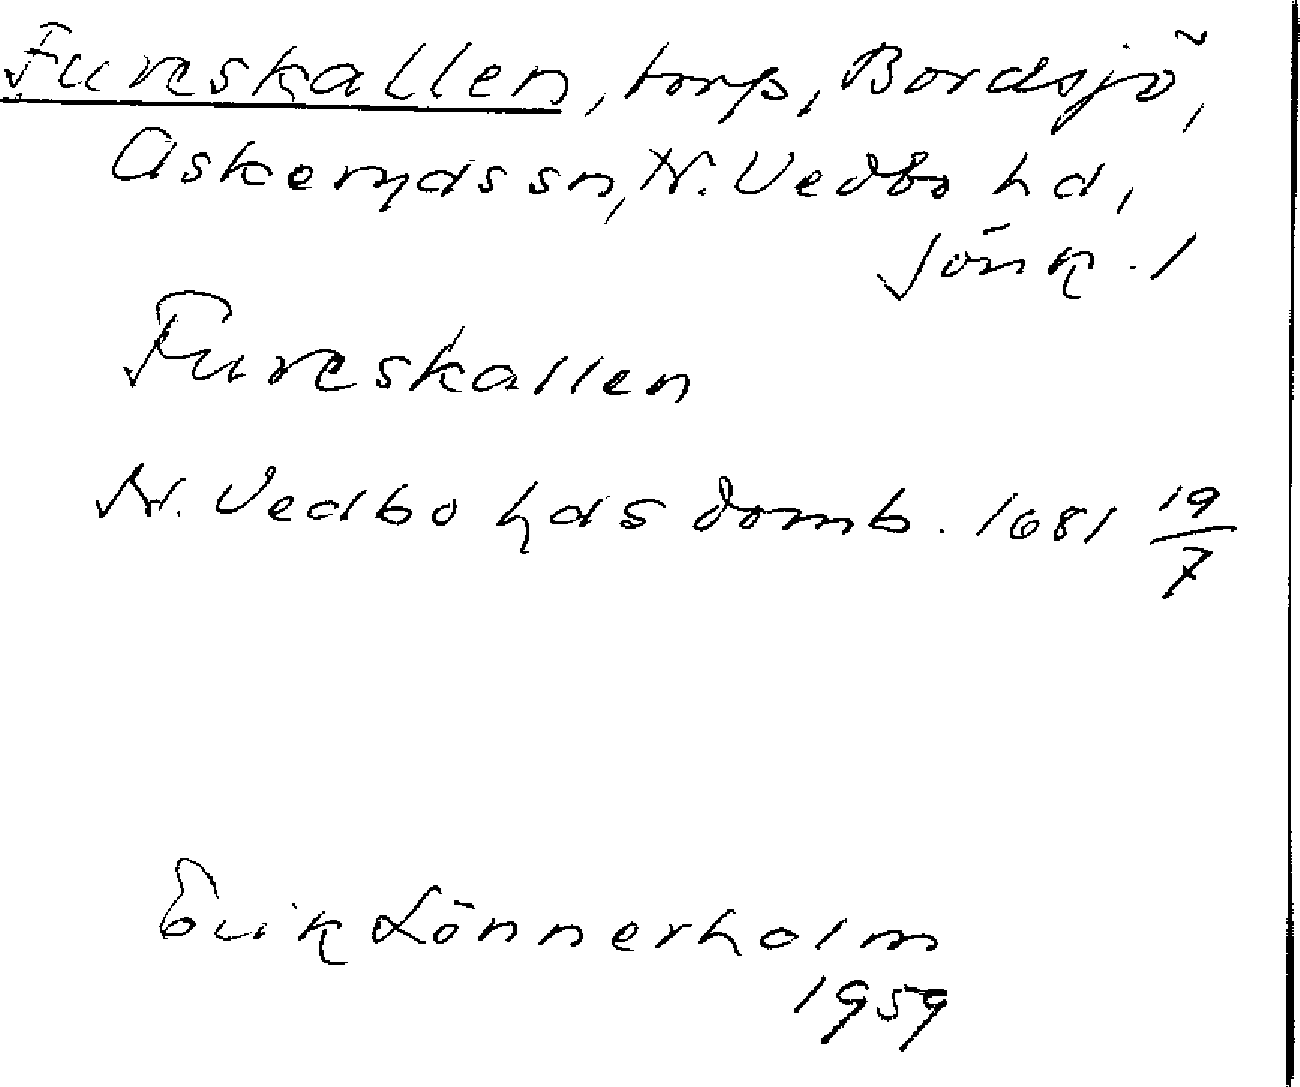 Fureskallen, torp, Bordsjö,
Askeryds sn, N. Vedbo hd,
Jönk. l
Fureskallen
N. Vedbo hds domb. 1681 19/7
Erik Lönnerholm
1959